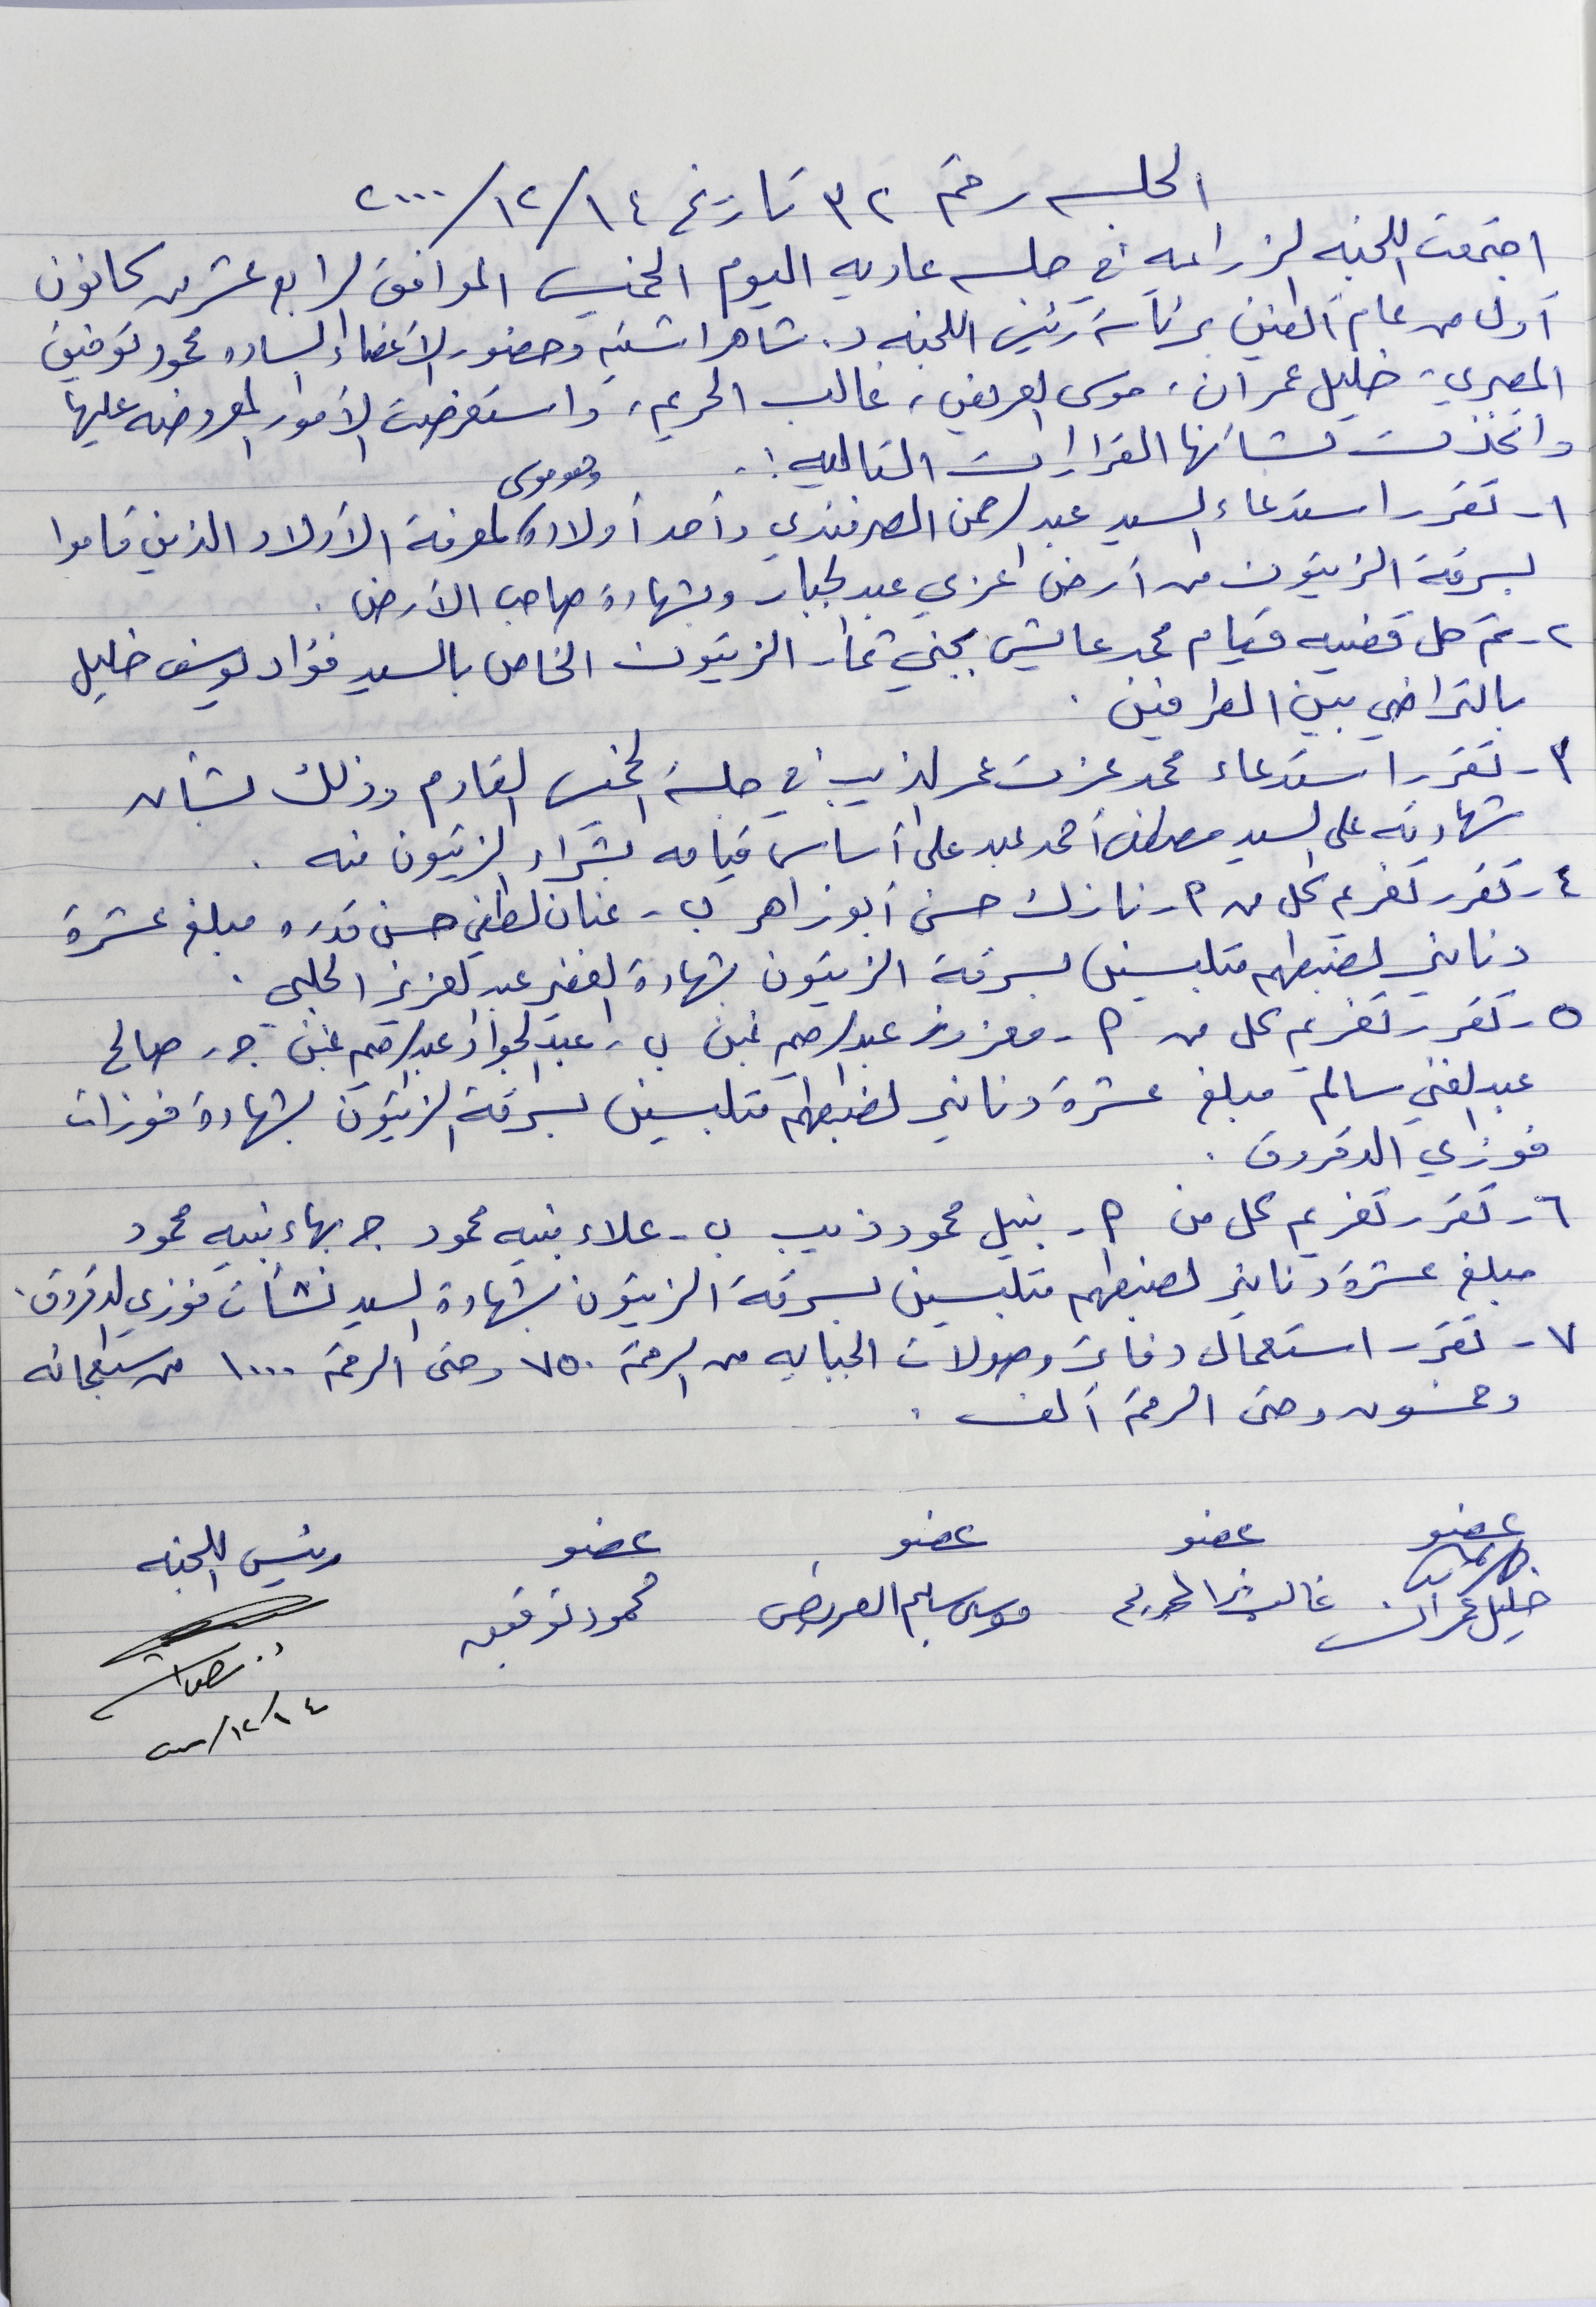 الجلسه رقم ٣٢ تاريخ ١٤/١٢/٢٠٠٠
اجتمعت اللجنه الزراعيه في جلسه عاديه اليوم الخميس الموافق الرابع عشر من كانون
أول من عام ألفين برئاسة رئيس اللجنه د. شاهر اشتيه وحضور الأعضاء الساده محمود توفيق
المصري، خليل عمران، موسى العريض، غالب الحريم، واستعرضت الأمور المعروضه عليها
واتخذت بشأنها القرارات التاليه :.
وهو موسى
١- تقرر استدعاء السيد عبد الرحمن الصرفندي وأحد أولاده لمعرفة الأولاد الذين قاموا
بسرقة الزيتون من أرض عزي عبد الجبار وبشهادة صاحب الأرض .
٢- تم حل قضيه قيام محمد عايش بجني ثمار الزيتون الخاص بالسيد فؤاد يوسف خليل
بالتراضي بين الطرفين .
٣- تقرر استدعاء محمد عزت عمر الذيب في جلسة الخميس القادم وذلك بشأن
شهادته على السيد مصطفى أحمد عبد على أساس قيامه بشراء الزيتون منه .
٤- تقرر تغريم كل من ٢- نازك حسني أبو زاهر ب- عنان لطفي حسن قدره مبلغ عشرة
دنانير لضبطهم متلبسين بسرقة الزيتون بشهادة الغفير عبد العزيز الحلبي .
٥- تقرر تغريم كل من ٢- معزوز عبد الرحيم غبن ب- عبد الجواد عبد الرحيم غبن ج- صالح
عبد الغني سالم مبلغ عشرة دنانير لضبطهم متلبسين بسرقة الزيتون بشهادة فوزات
فوزي الدقروق .
٦- تقرر تغريم كل من ٢- نبيل محمود ذيب ب- علاء نبيه محمود ج بهاء نبيه محمود
مبلغ عشرة دنانير لضبطهم متلبسين بسرقة الزيتون بشهادة السيد نشأت فوزي الدقروق .
٧- تقرر استعمال دفاتر وصولات الجبايه من الرقم ٧٥٠ وحتى الرقم ١٠٠٠ من سبعمائه
وخمسون وحتى الرقم ألف .
عضو عضو عضو عضو رئيس اللجنه
خليل عمران غالب الحريم موسى سليم العريض محمود توفيق
١٤/١٢/٢٠٠٠